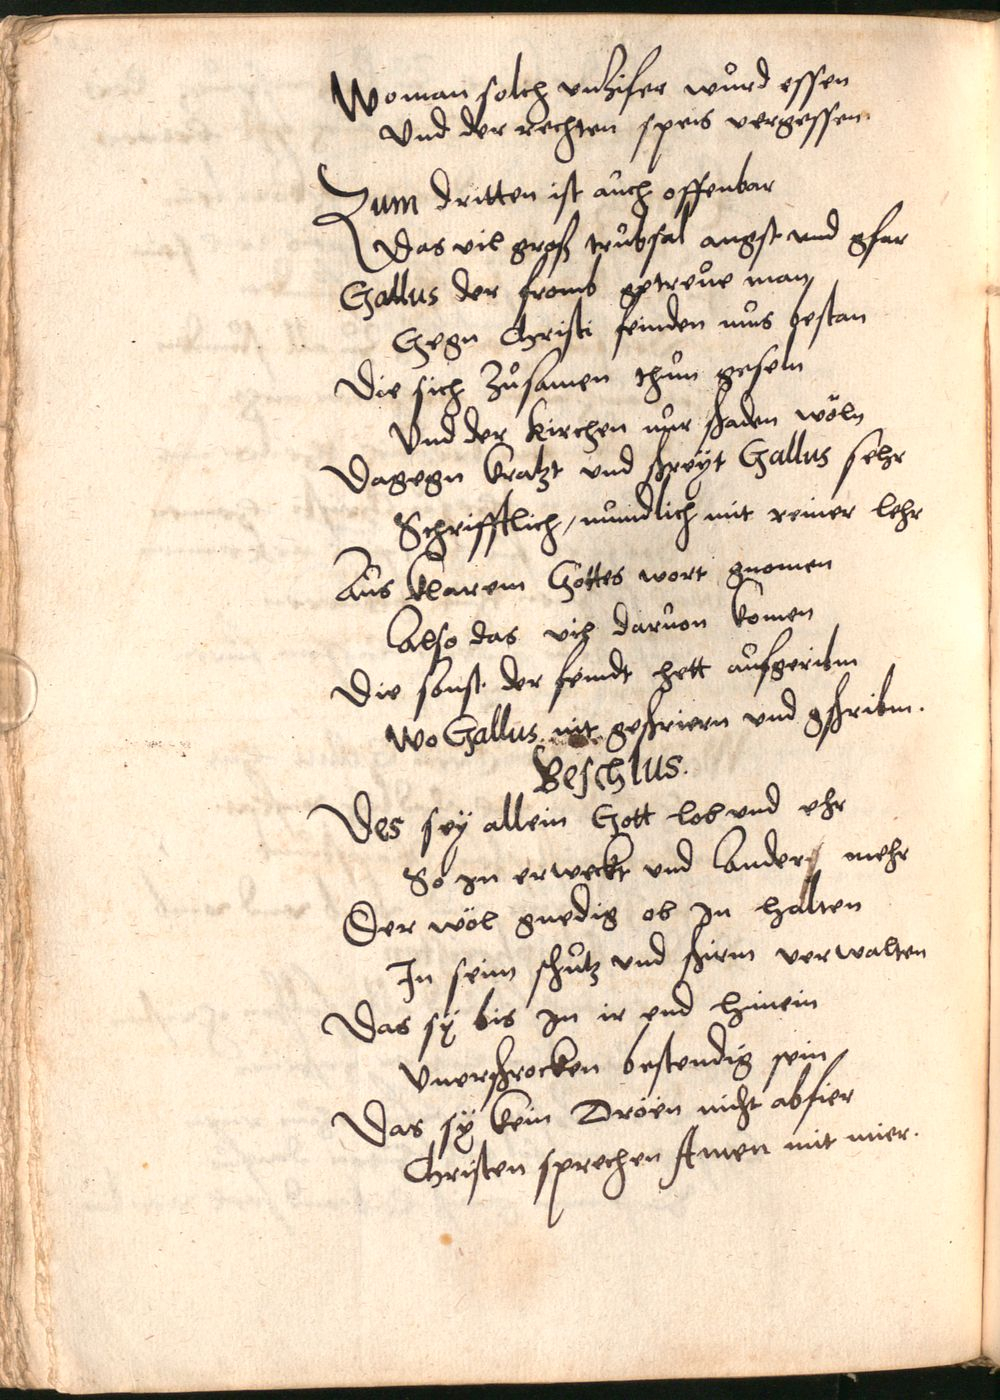 Woman solch unzifer würd essen
Und der rechten speis vergessen.
Zum dritten ist auch offenbar
Das vil groß trübsal angst und gfar
Gallus der fromb getreue man
Gegn Christi feinden mus bestan
Die sich zusamen thun geseln
Und der kirchen nur schaden wöln
Dagegn kratzt und schreyt Gallus sehr
Schrifftlich, mundlich mit reiner lehr
Aus klarem Gottes wort gnomen
Also das vil daruon komen
Die sonst der feindt hett aufgeribm
Wo Gallus nit geschriern und gschribm.
Beschlus.
Des sey allein Gott lob und ehr
So in erweckt und ander mehr
Der wöl gnedig ob in halten
In seim schutz und schirm verwalten
Das sy bis in ir end hinein
Unerschrocken bestendig sein
Das sy kein dröen nicht abfier
Christen sprechen Amen mit mier.